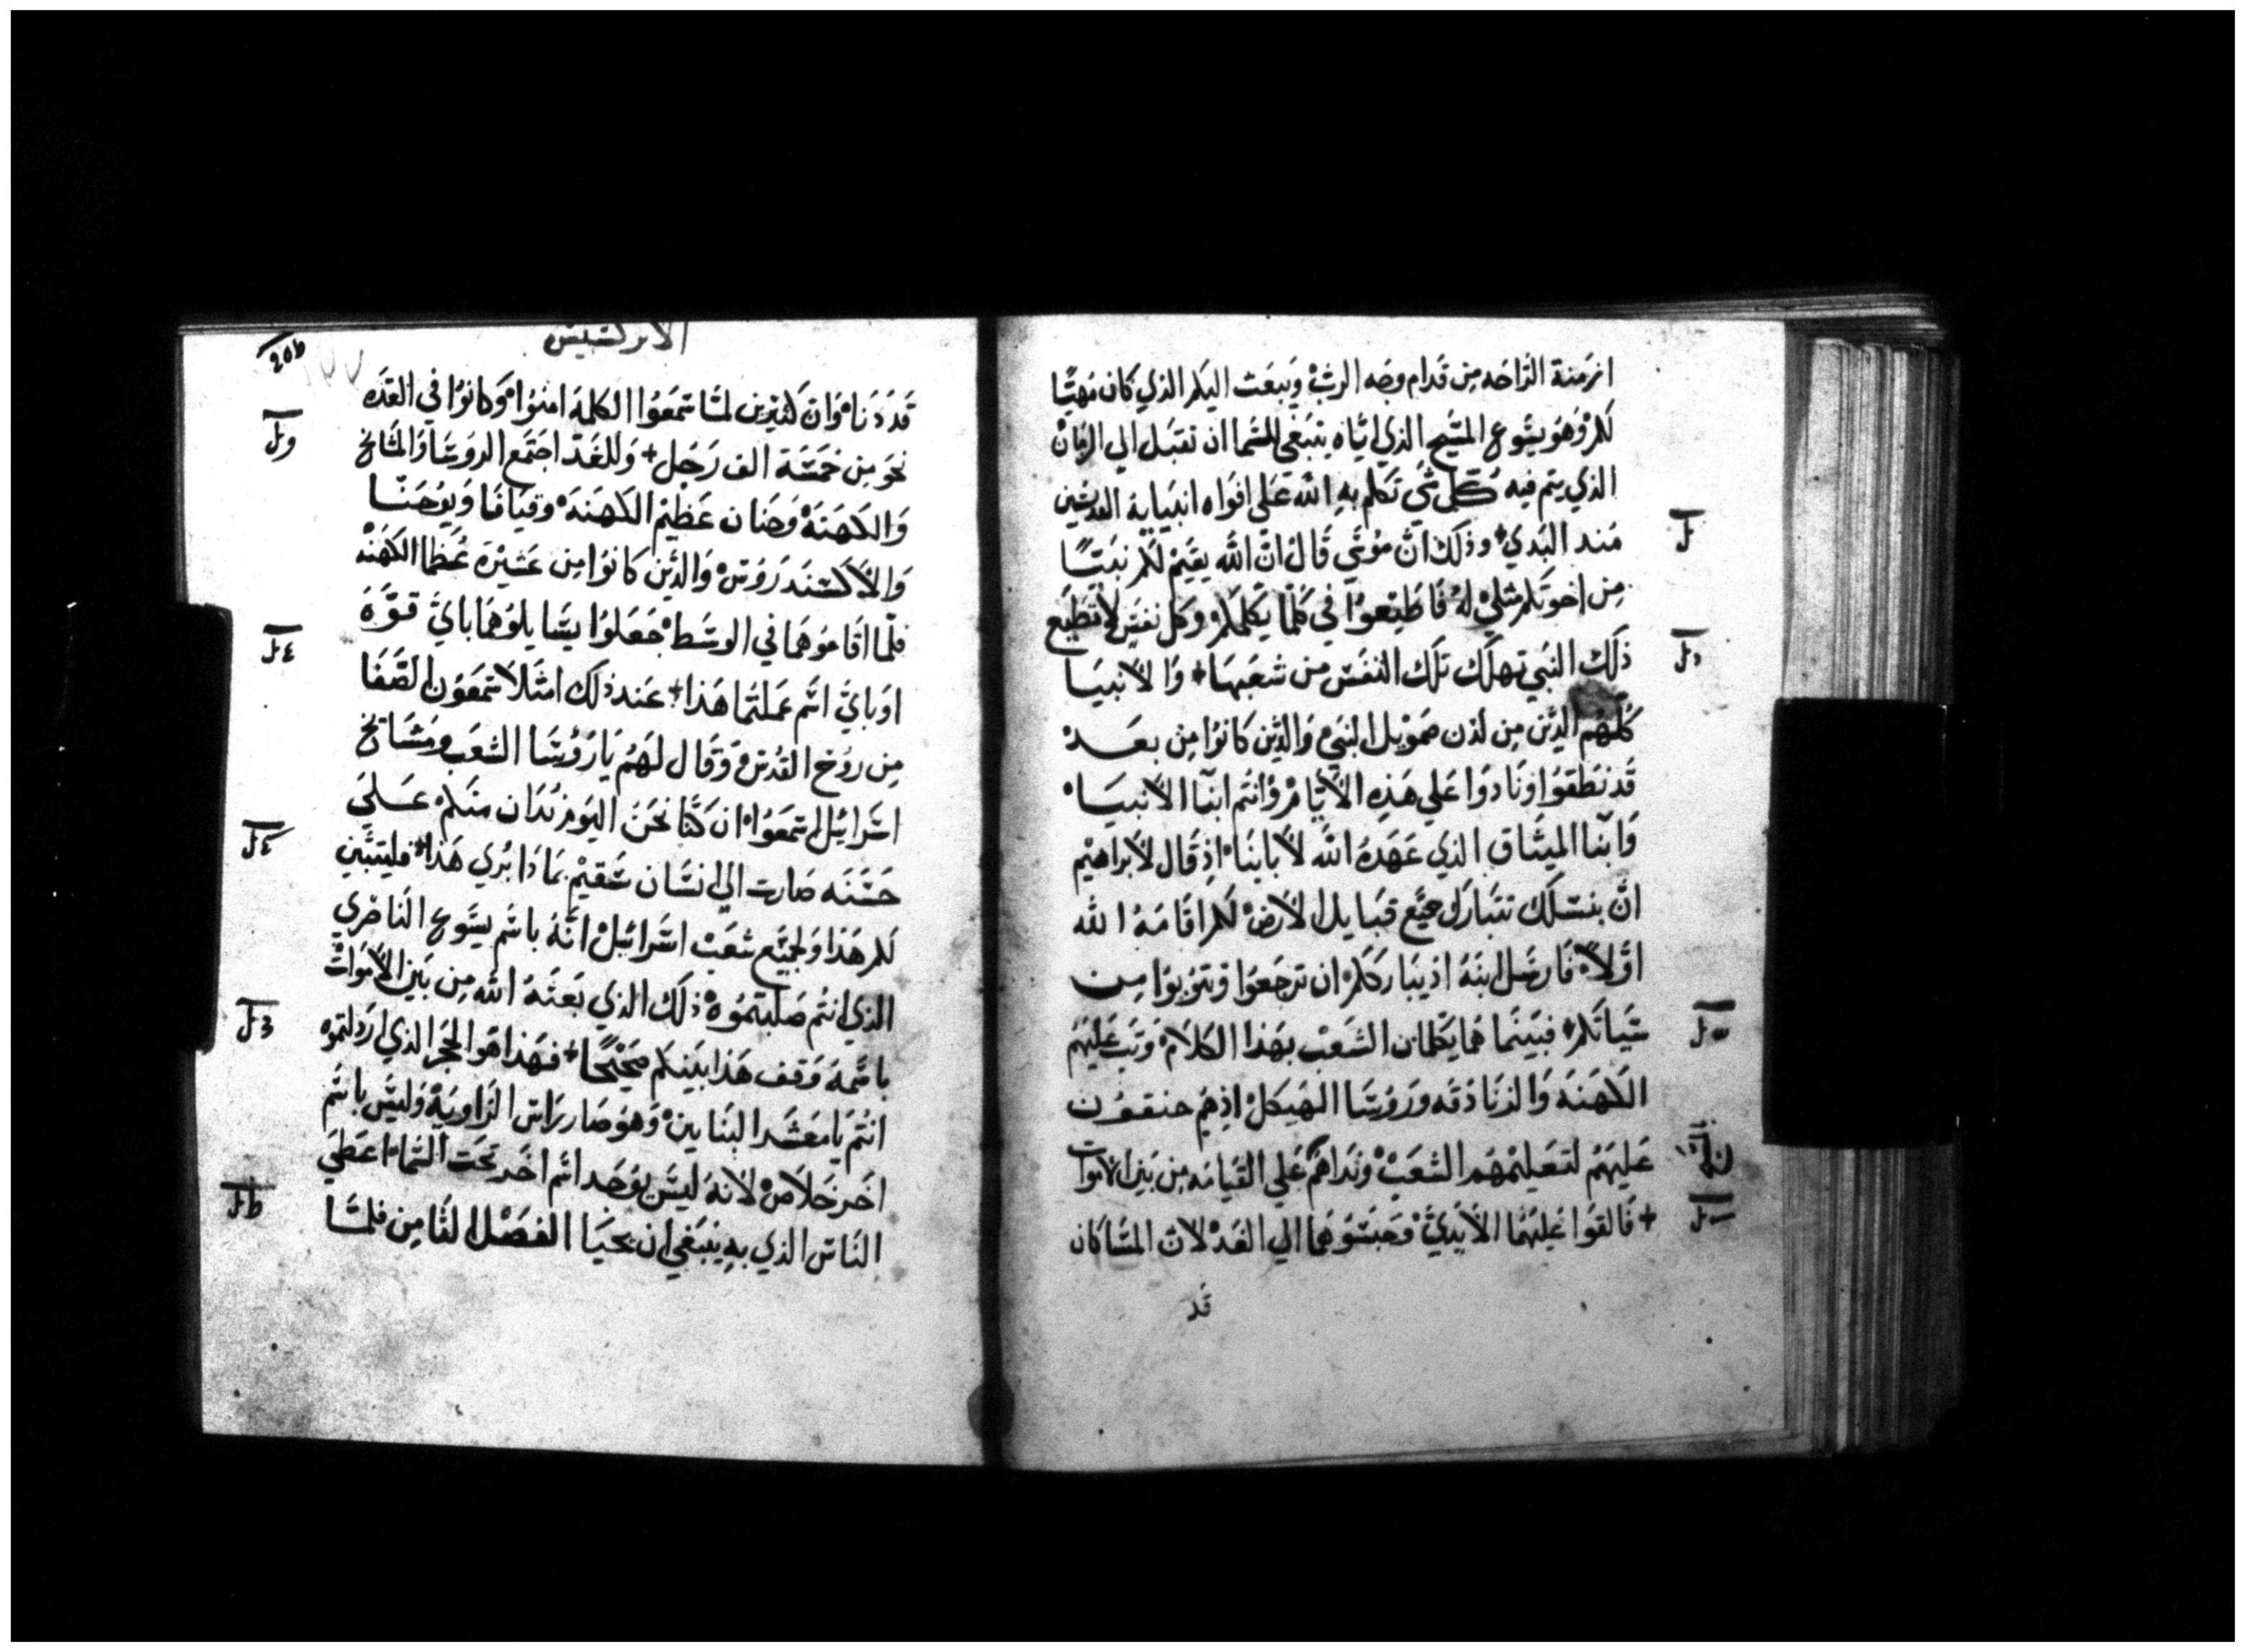 ازمنة الراحه من قدام وجه الرب ويبعث اليكم الذي كان مهيًا
لكم وهو يسوع المسيح الذي اياه ينبغي للسما ان تقبل الي الزمان
الذي يتم فيه كل شي تكلم به الله علي افواه انبيايه القديسين
منذ البدي + وذلك ان موسي قال ان الله يقيم لكم نبيًا
من اخوتكم مثلي له فاطيعوا في كلما يكلمكم وكل نفس لا تطيع
ذلك النبي تهلك تلك النفس من شعبها + والانبيا
كلهم الذين من لدن صمويل النبي والذين كانوا من بعد
قد نطقوا ونادوا علي هذه الايام وانتم ابنا الانبيا
وابنا الميثاق الذي عهده الله لابائنا اذ قال لابراهيم
ان بنسلك تتبارك جميع قبايل الارض لكم اقامه الله
اولًا فارسل ابنه اذ يبارككم ان ترجعوا وتتوبوا من
سياتكم + فبينما هما يكلمان الشعب بهذا الكلام وتب عليهم
الكهنه والزنادقه وروسا الهيكل اذ هم حنقون
عليهم لتعليمهم الشعب ونداهم علي القيامه من بين الاموات
+ فالقوا عليهما الايدي وحبسوهما الي الغد لان المسا كان
قد
الابركسيس
قد دنا وان كثيرين لما سمعوا الكلمه امنوا وكانوا في العده
نحو من خمسة الف رجل + وللغد اجتمع الروسا والمشايخ
والكهنه وحنان عظيم الكهنه وقيافا ويوحنا
والاكسندروس والذين كانوا من عشيرة عظما الكهنه
فلما اقاموهما في الوسط جعلوا يسايلوهما باي قوه
او باي اسم عملتما هذا + عند ذلك امتلا سمعون الصفا
من روح القدس وقال لهم يا روسا الشعب ومشايخ
اسرائيل اسمعوا ان كنا نحن اليوم ندان منكم علي
حسنه صارت الي انسان سقيم بماذا بري هذا + فليتبين
لكم هذا ولجميع شعب اسرائيل انه باسم يسوع الناصري
الذي انتم صلبتموه ذلك الذي بعثه الله من بين الاموات
باسمه وقف هذا بينكم صحيحًا + فهذا هو الحجر الذي ارذلتموه
انتم يا معشر البنايين وهو صار راس الزاوية وليس باسم
اخر خلاص لانه ليس يوجد اسم اخر تحت السما اعطي
الناس الذي به ينبغي ان يحيا الفصل الثامن فلما